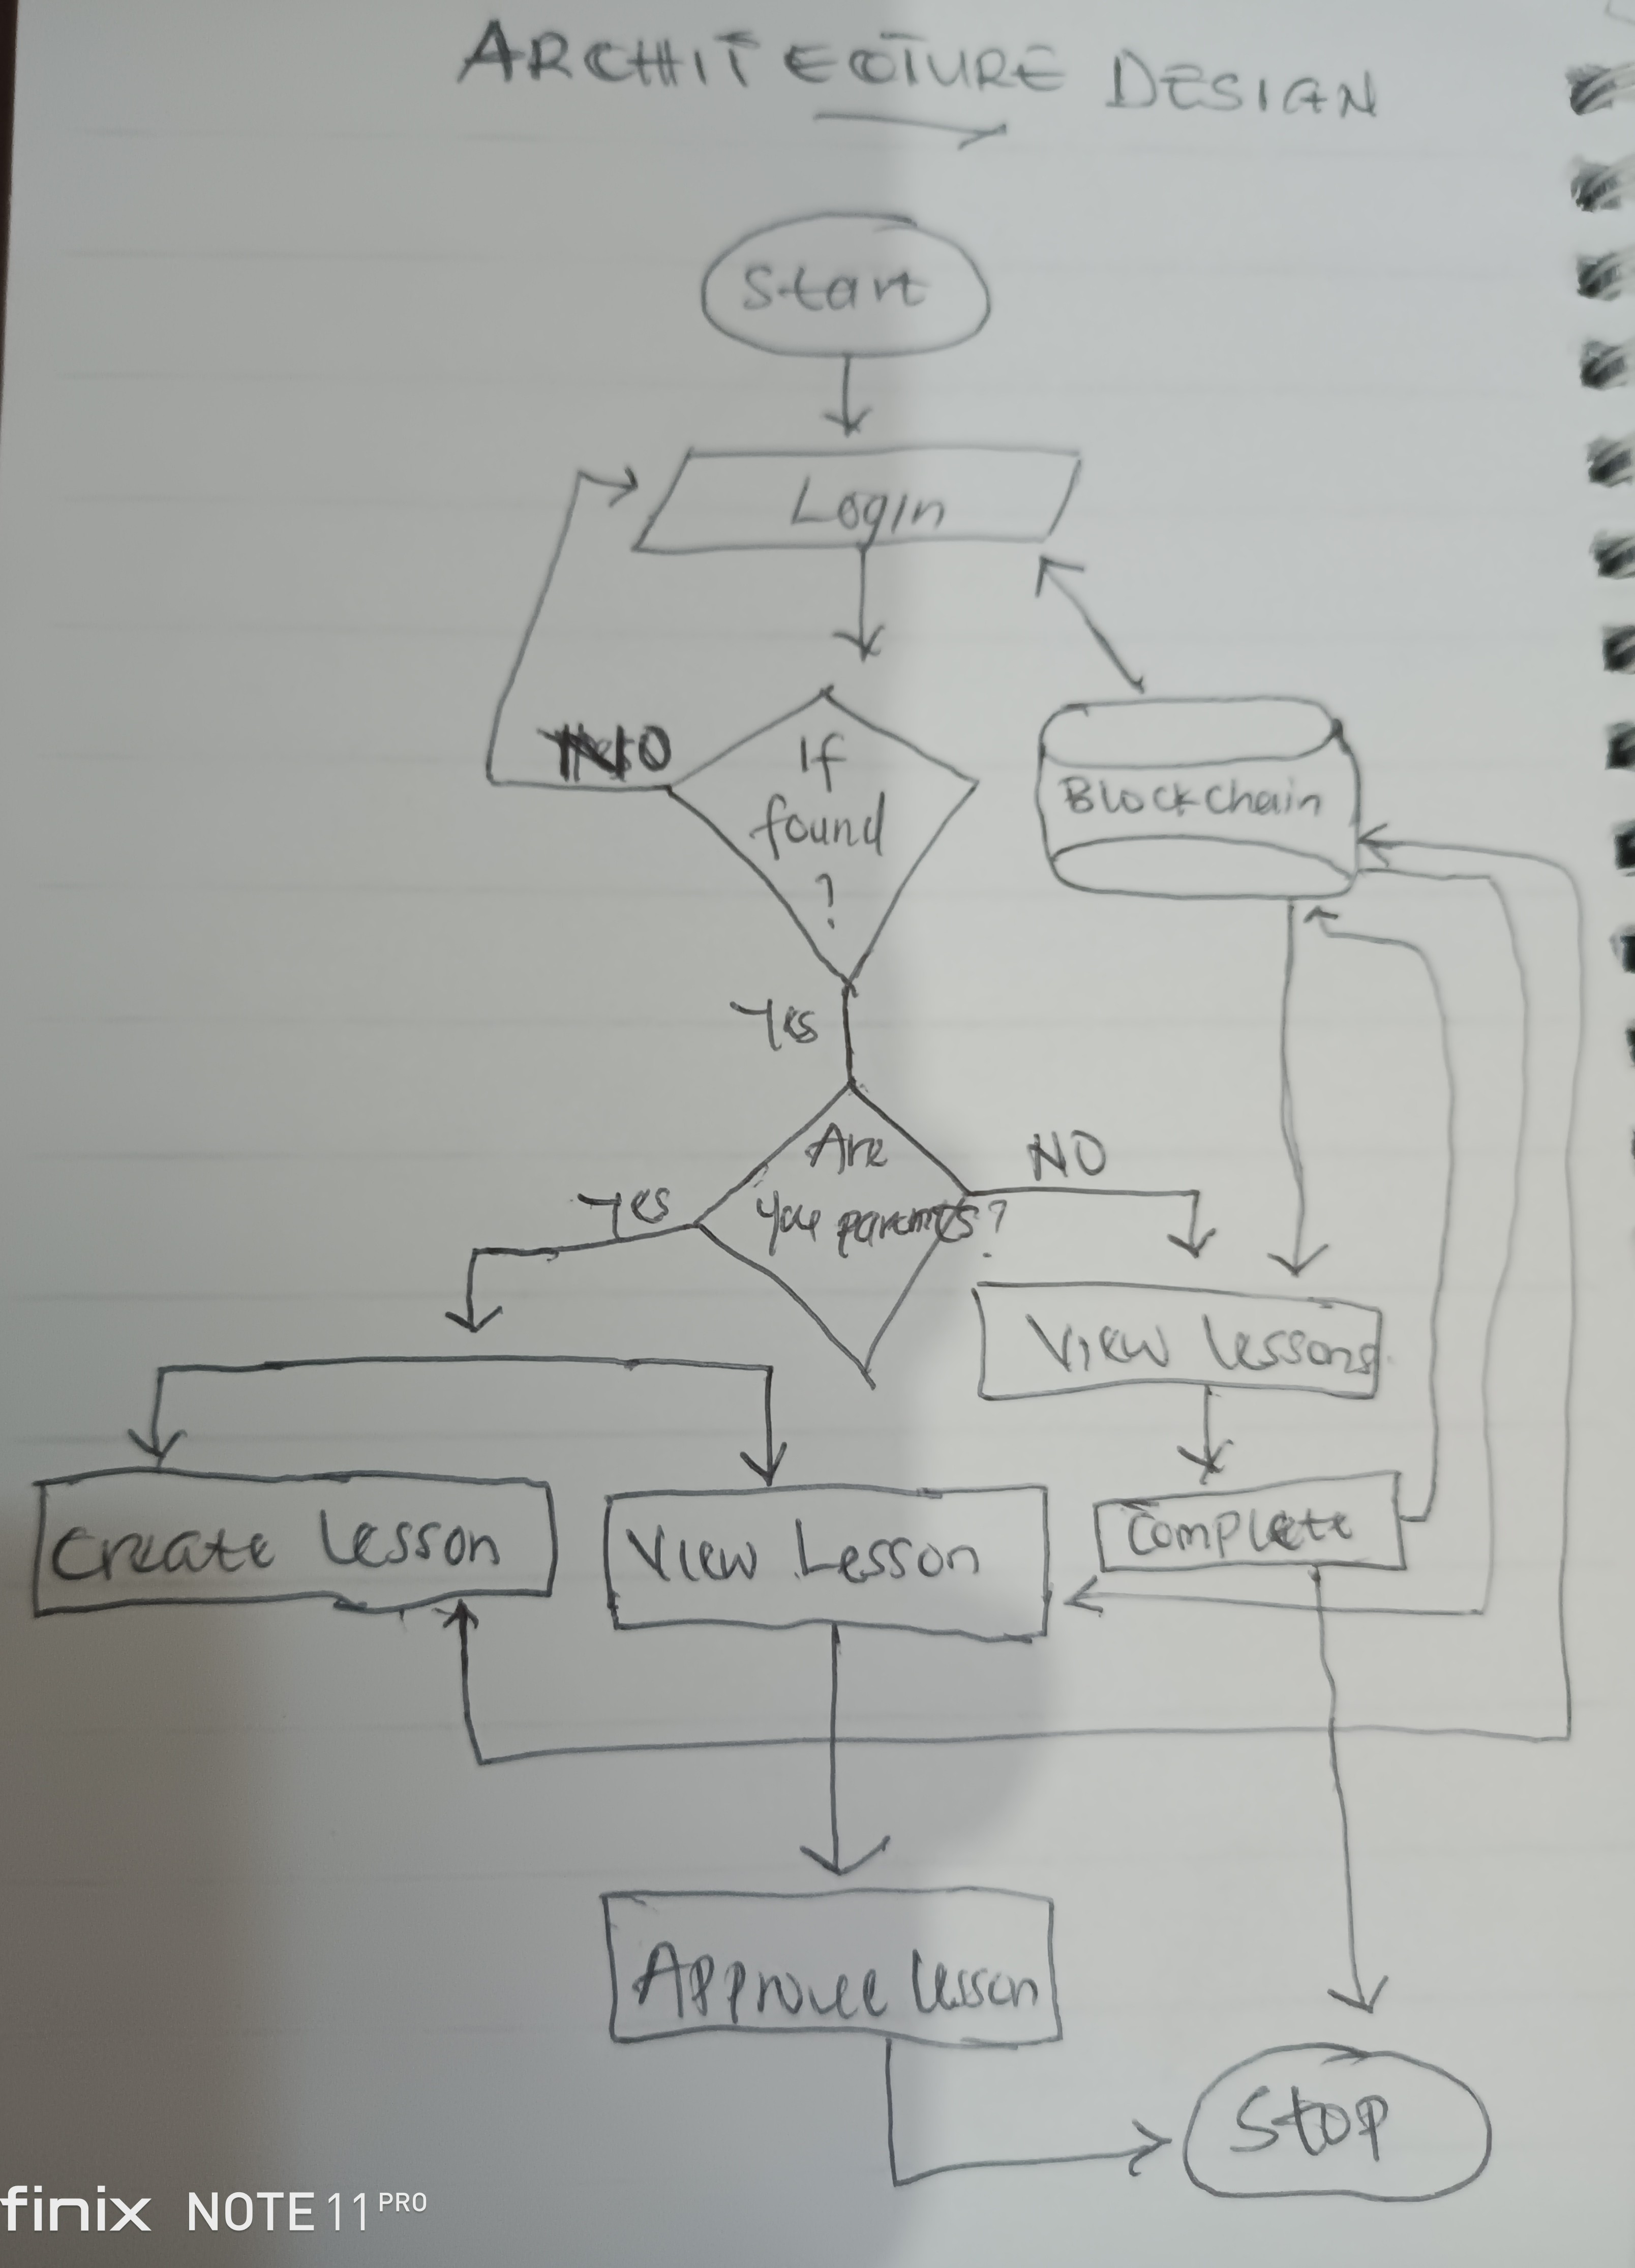 ARCHITECTURE DESIGN
Start
Login
NO
If
found
?
Blockchain
Yes
Are
you parents?
Yes
NO
View lessons
Create Lesson
View Lesson
Complete
Approve Lesson
Stop
finix NOTE 11 PRO